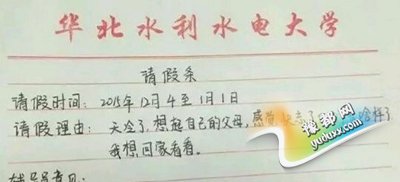 华北水利水电大学
请假条
请假时间：2015年12月4至1月1日
请假理由：天冷了，想起自己的父母，感觉
我想回家看看。
豫都网
yuduxx.com